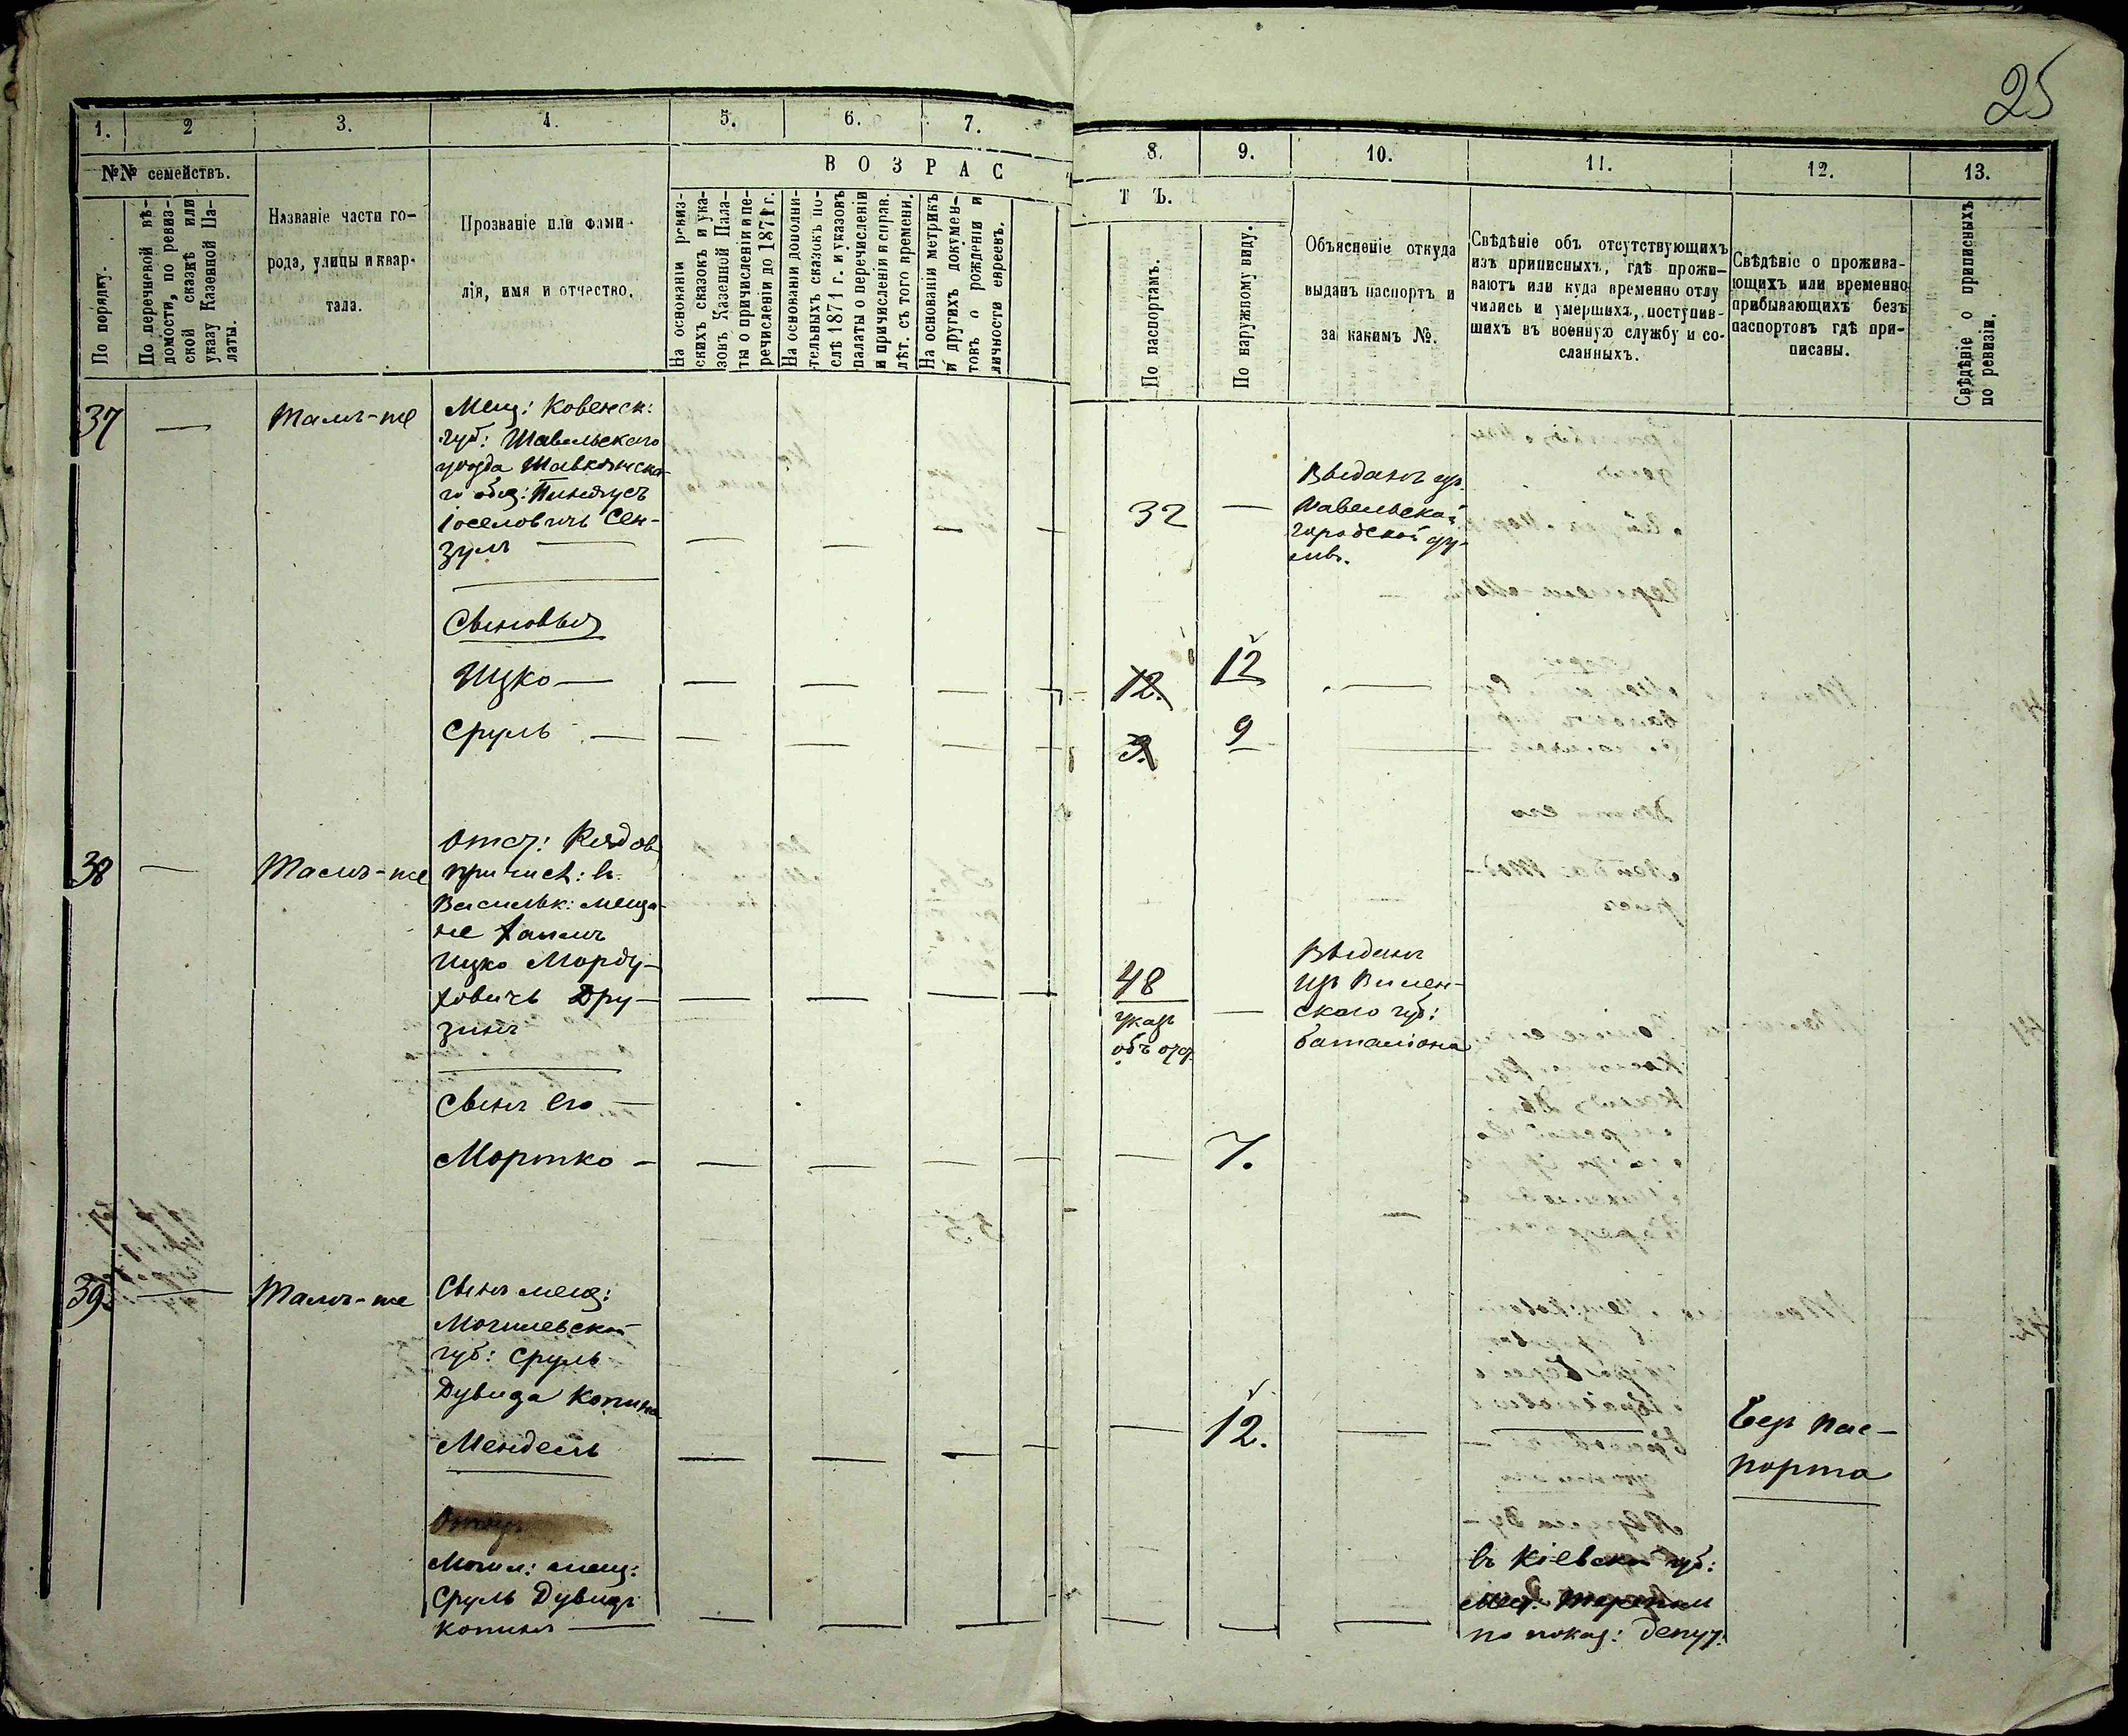 25
1. 2 3. 4. 5. 6. 7. 8. 9. 10. 11. 12. 13.
№№ семействъ.
По порядку.
По перечневой вѣ-
домости, по ревиз-
ской сказкѣ или
указу Казенной Па-
латы.
Названіе части го-
рода, улицы и квар-
тала.
Прозваніе или фами-
лія, имя и отчество.
ВОЗРАС
ТЪ.
На основаніи ревиз-
скихъ сказокъ и ука-
зовъ Казенной Пала-
ты о причисленіи и пе-
речисленіи до 1871 г.
На основаніи дополни-
тельныхъ сказокъ по-
слѣ 1871 г. и указовъ
палаты о перечисленіи
и причисленіи и справ.
лѣт. съ того времени.
На основаніи метрикъ
и другихъ докумен-
товъ о рожденіи и
личности евреевъ.
По паспортамъ.
По наружному виду.
Объясненіе откуда
выданъ паспортъ и
за какимъ №.
Свѣдѣніе объ отсутствующихъ
изъ приписныхъ, гдѣ прожи-
ваютъ или куда временно отлу
чились и умершихъ, поступив-
шихъ въ военную службу и со-
сланныхъ.
Свѣдѣніе о прожива-
ющихъ или временно
прибывающихъ безъ
паспортовъ гдѣ при-
писаны.
Свѣдѣніе о приписныхъ
по ревизіи.
37 — Тамъ-же
Мещ: Ковенск:
губ: Шавельскаго
уѣзда Шавкянска-
го общ: Пинхусъ
Іоселовичъ Сен-
зулъ — — — — 32 —
Выданъ изъ
Шавельской
городской ду-
мы.
Сыновья
Ицко — — — — 12. 12 —
Сруль — — — — 9. 9 —
38 — Тамъ-же
Отст: Рядов
причисл: въ
Васильк: меща-
не Хаимъ
Ицко Морду-
ховичъ Дру-
зинъ
— — — 48 —
указъ
объ отст.
Выданъ
изъ Вилен-
скаго губ:
баталіона
Сынъ его —
Мортко — — — — — 7.
39. — Тамъ-же
Сынъ мещ:
Могилевской
губ: Сруль
Дувида Копина
Мендель — — — — 12. — —
Безъ пас-
порта
Могил: мещ:
Сруль Дувидъ
Копинъ — — — — — — —
въ Кіевской губ:
по показ: депут: